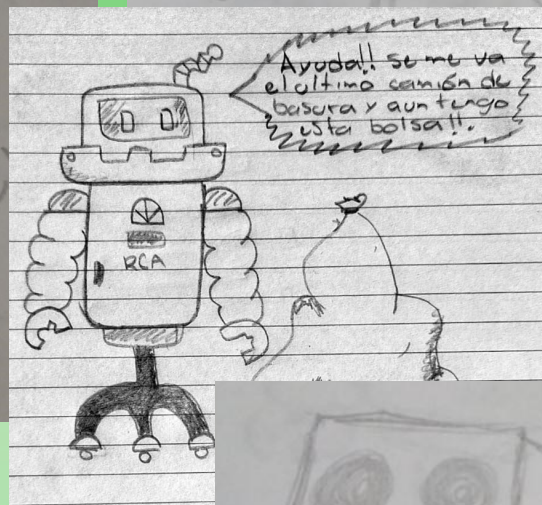 Ayuda!! se me va
el ultimo camión de
basura y aun tengo
esta bolsa!!.
RCA